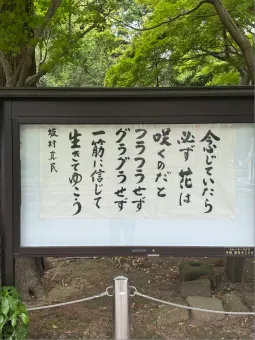 念じていたら
必ず花は
咲くのだと
フラフラせず
グラグラせず
一筋に信じて
生きてゆこう
坂村真民